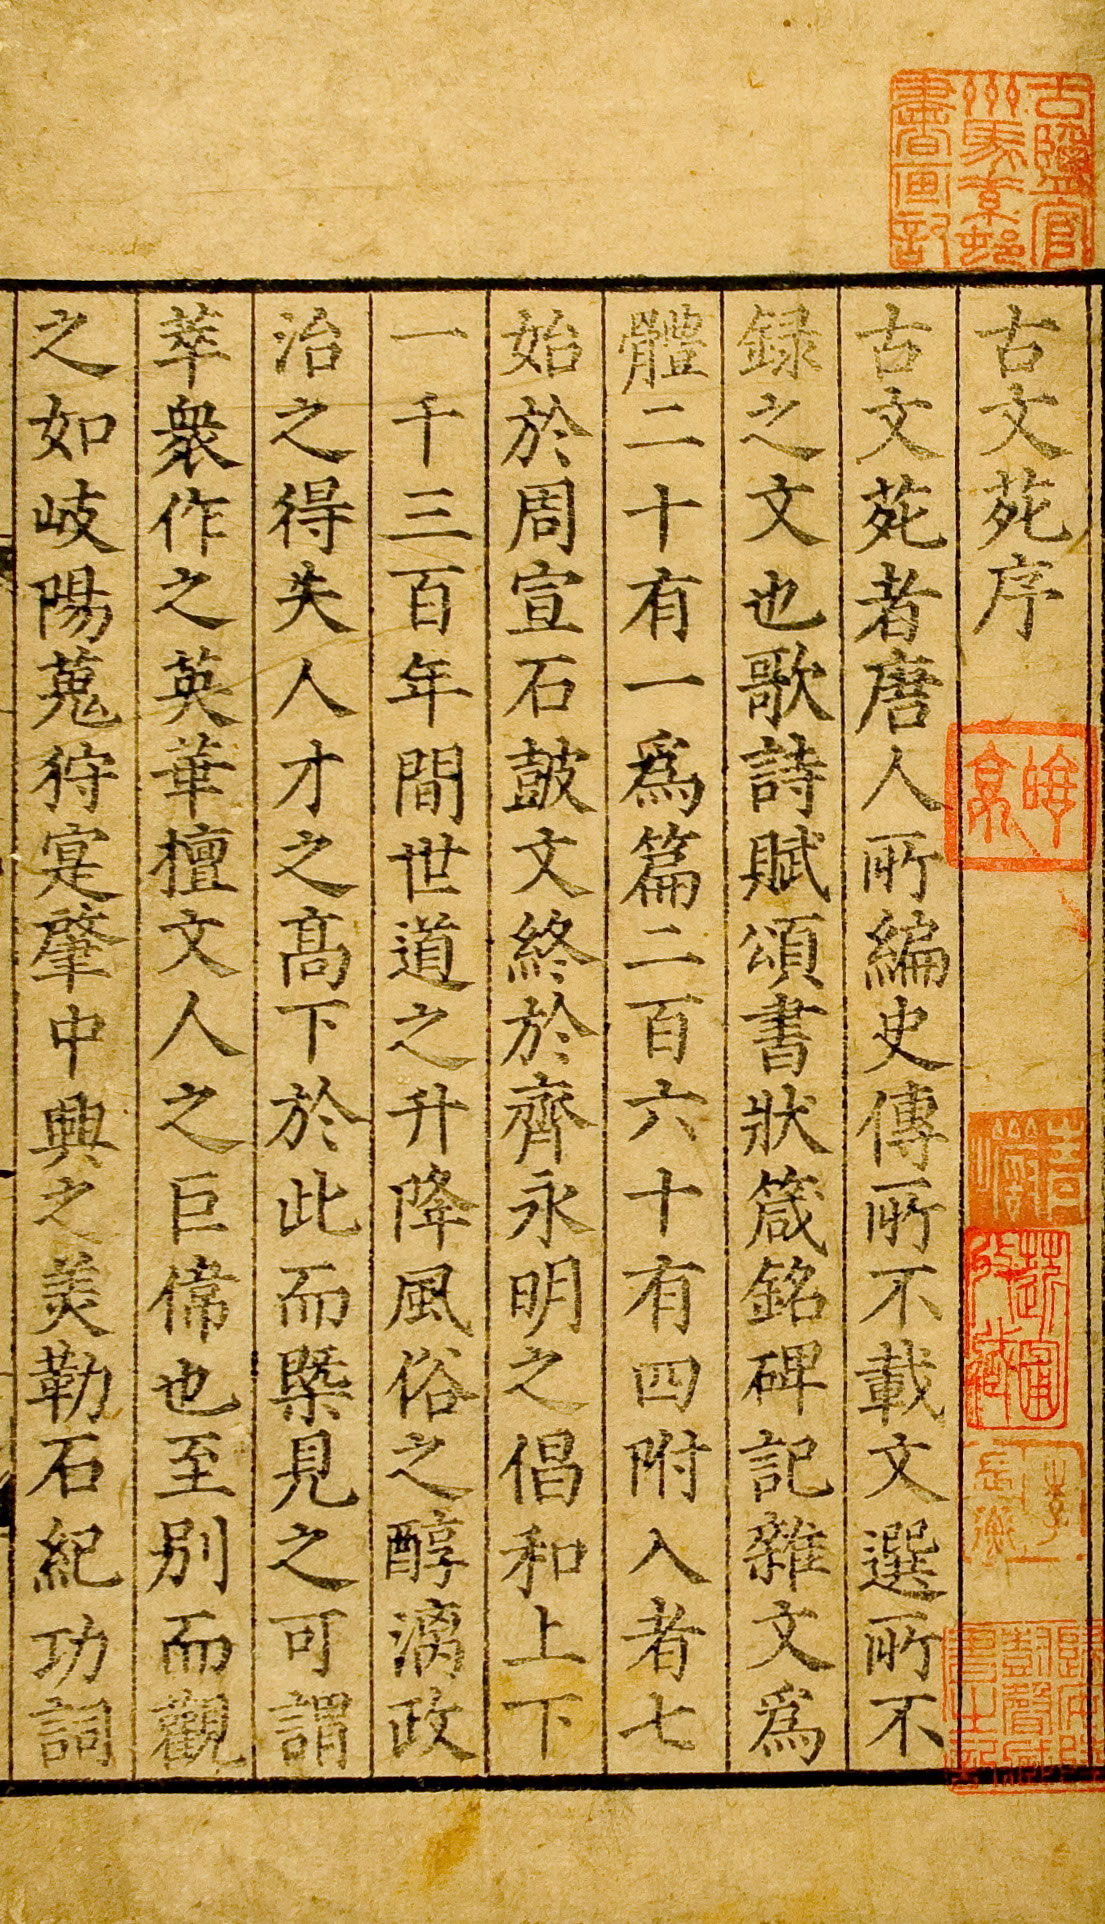 古文苑序
古文苑者唐人所編史傳所不載文選所不
録之文也歌詩賦頌書狀箴銘碑記雜文爲
體二十有一爲篇二百六十有四附入者七
始於周宣石鼓文終於齊永明之倡和上下
一千三百年間世道之升降風俗之醇漓政
治之得失人才之髙下於此而槩見之可謂
萃衆作之英華擅文人之巨偉也至别而觀
之如岐陽蒐狩寔肇中興之美勒石紀功詞
古鹽官州馬素邨書畫記